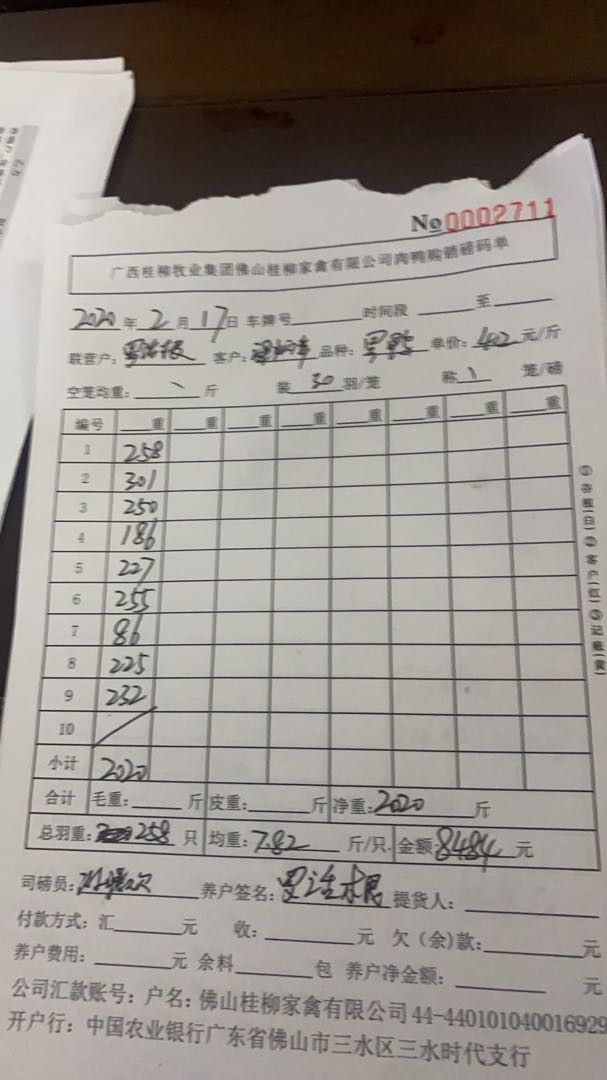 No 0002711
广西桂柳牧业集团佛山桂柳家禽有限公司肉鸭购销磅码单
2020 年 2 月 17 日 车牌号 时间段 至
联营户: 客户: 品种: 单价: 元/斤
空笼均重: 斤 装 30 羽/笼 称 1 笼/磅
编号 重 重 重 重 重 重 重 重
1 258
2 301
3 250
4 186
5 227
6 255
7 86
8 225
9 232
10
小计 2020
合计 毛重: 斤 皮重: 斤 净重: 2020 斤
总羽重: 258 只 均重: 7.82 斤/只 金额: 8484 元
司磅员: 养户签名: 提货人:
付款方式: 汇 元 收: 元 欠(余)款: 元
养户费用: 元 余料 包 养户净金额: 元
公司汇款账号: 户名: 佛山桂柳家禽有限公司 44-440101040016929
开户行: 中国农业银行广东省佛山市三水区三水时代支行
①存根(白)②客户(红)③记账(黄)